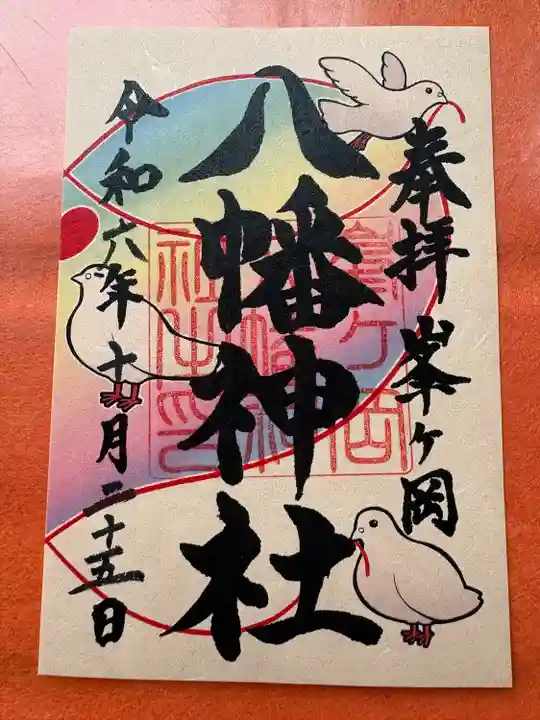 奉拝 峯ヶ岡
八幡神社
令和六年十月二十五日
峯ヶ岡
八幡神
社之印